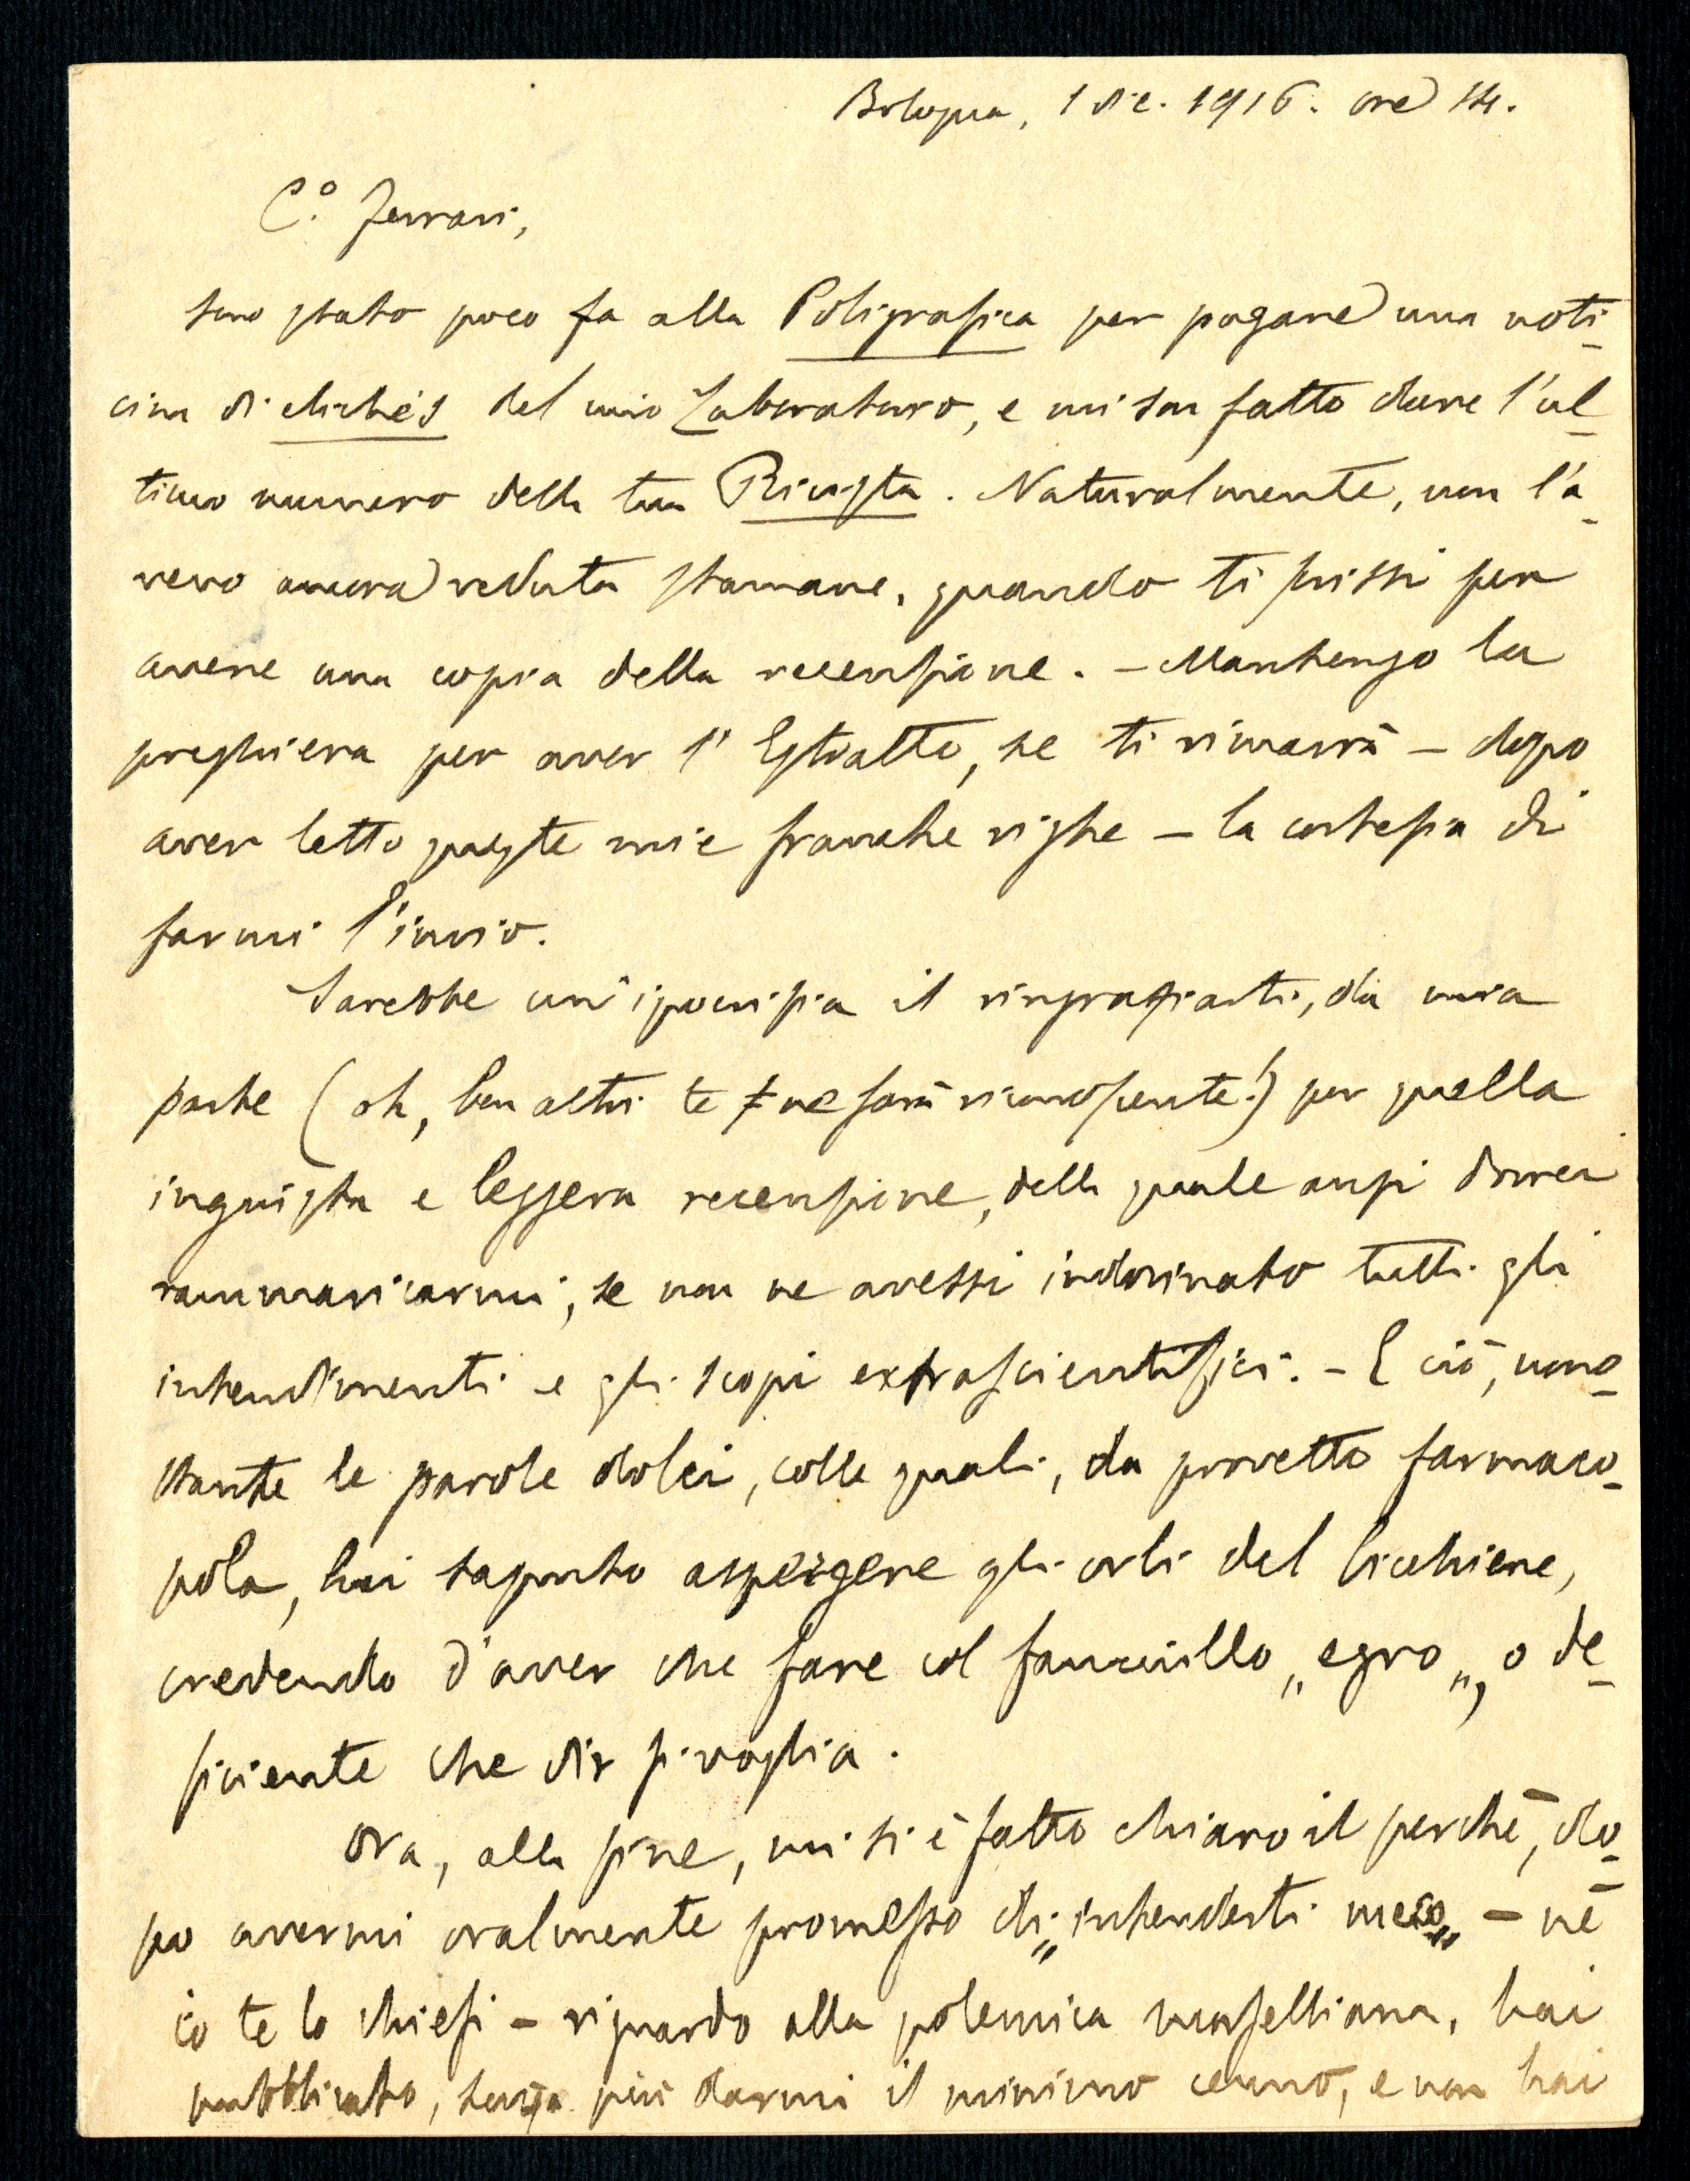 Bologna, 1 dic. 1916. ore 14.
C.º Ferrari,
sono stato poco fa alla Poligrafica per pagare una noti-
cina di clichés del mio Laboratorio, e mi son fatto dare l'ul-
timo numero della tua Rivista. Naturalmente, non l'a-
vevo ancora veduta stamane, quando ti scrissi per
avere una copia della recensione. – Mantengo la
preghiera per aver l'Estratto, se ti rimarrà – dopo
aver letto queste mie franche righe – la cortesia di
farmi l'invio.
Sarebbe un'ipocrisia il ringraziarti, da mia
parte (oh, ben altri te ne sarà riconoscente!) per quella
ingiusta e leggera recensione, della quale anzi dovrei
rammaricarmi, se non ne avessi indovinato tutti gli
intendimenti e gli scopi extrascientifici. – E ciò, nono-
stante le parole dolci, colle quali, da provetto farmaco-
pola, hai saputo aspergere gli orli del bicchiere,
credendo d'aver che fare col fanciullo „egro„, o de-
ficiente che dir si voglia.
Ora, alla fine, mi si è fatto chiaro il perchè, do-
po avermi oralmente promesso di „intenderti meco„ – nè
io te lo chiesi – riguardo alla polemica maselliana, hai
pubblicato, senza più darmi il minimo cenno, e non hai